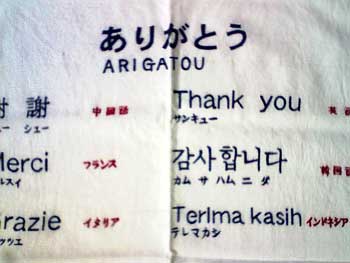 ありがとう
ARIGATOU
謝 中国語 Thank you 英
ー シェー サンキュー
Merci フランス 감사합니다 韓国語
ルスィ カム サ ハム ニ ダ
Grazie イタリア Terlma kasih インドネシア
ッツエ テレマカシ